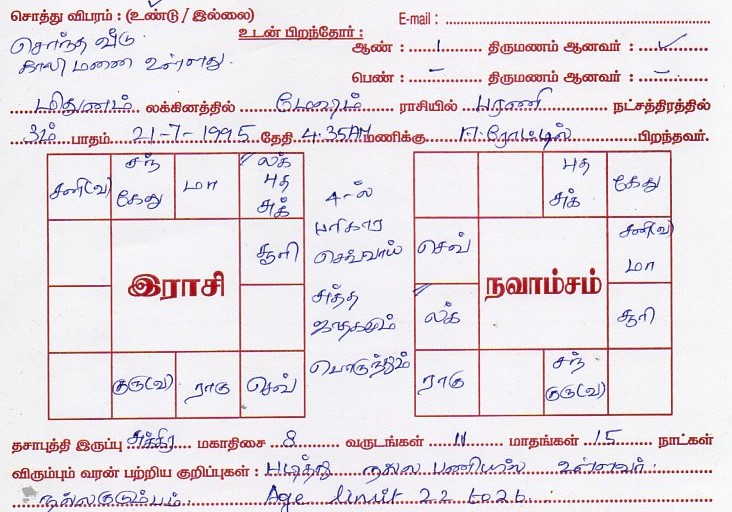 சொத்து விபரம் : (உண்டு / இல்லை)
E-mail :
உடன் பிறந்தோர் :
சொந்த வீடு
காலி மனை உள்ளது.
ஆண் : 1 திருமணம் ஆனவர் : ✓
பெண் : – திருமணம் ஆனவர் : –
மிதுனம் லக்கினத்தில் மேஷம் ராசியில் பரணி நட்சத்திரத்தில்
3ம் பாதம் 21-7-1995 தேதி 4.35AM மணிக்கு ஈரோட்டில் பிறந்தவர்.
சனி(வ) சந் கேது மா லக் புத சுக்
சூரி
இராசி
குரு(வ) ராகு செவ்
4-ல்
பரிகார
செவ்வாய்
சுத்த
ஜாதகமும்
பொருந்தும்
புத சுக் கேது
செவ் சனி(வ) மா
நவாம்சம்
லக் சூரி
ராகு சந் குரு(வ)
தசாபுத்தி இருப்பு சுக்கிர மகாதிசை 8 வருடங்கள் 11 மாதங்கள் 15 நாட்கள்
விரும்பும் வரன் பற்றிய குறிப்புகள் : படித்து நல்ல பணியில் உள்ளவர்.
நல்லகுடும்பம். Age limit 22 to 26